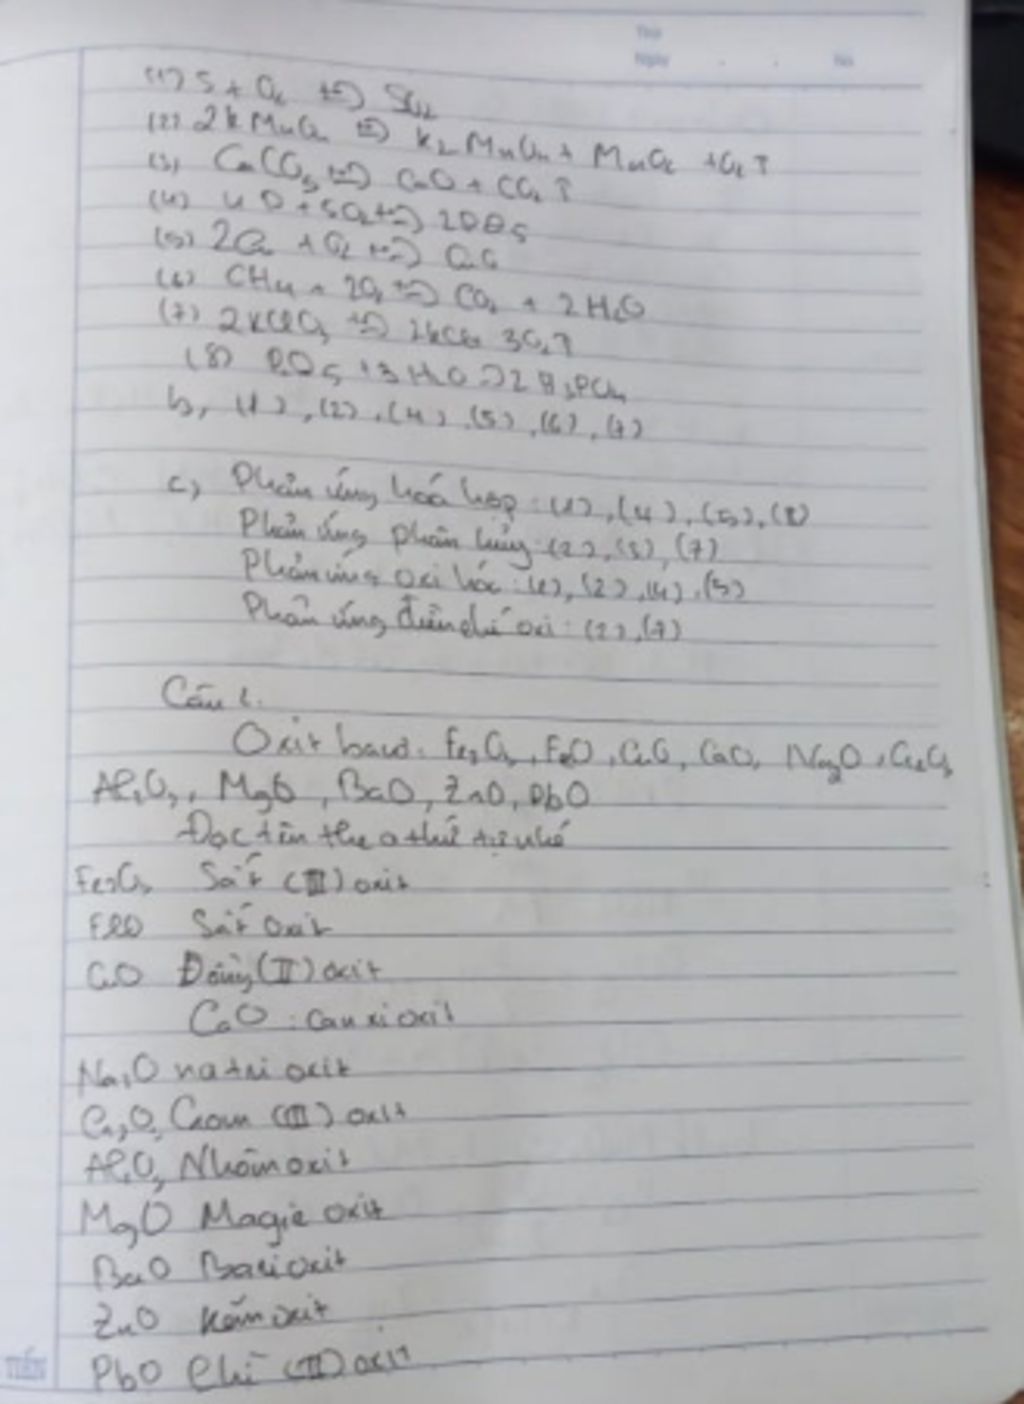 Thứ
Ngày . . No
(1) S + O2 t°=> SO2
(2) 2KMnO4 t°=> K2MnO4 + MnO2 + O2↑
(3) CaCO3 t°=> CaO + CO2↑
(4) 4P + 5O2 t°=> 2P2O5
(5) 2Cu + O2 t°=> CuO
(6) CH4 + 2O2 t°=> CO2 + 2H2O
(7) 2KClO3 t°=> 2KCl + 3O2↑
(8) P2O5 + 3H2O => 2H3PO4
b, (1), (2), (4), (5), (6), (7)
c, Phản ứng hoá hợp: (1), (4), (5), (8)
Phản ứng phân hủy: (2), (3), (7)
Phản ứng oxi hóa: (1), (2), (4), (5)
Phản ứng điều chế oxi: (2), (7)
Câu 2.
Oxit bazơ: Fe2O3, FeO, CuO, CaO, Na2O, Cr2O3
Al2O3, MgO, BaO, ZnO, PbO
Đọc tên theo thứ tự nhé
Fe2O3 Sắt (III) oxit
FeO Sắt oxit
CuO Đồng (II) oxit
CaO: canxi oxit
Na2O natri oxit
Cr2O3 Crom (III) oxit
Al2O3 Nhôm oxit
MgO Magie oxit
BaO Bari oxit
ZnO kẽm oxit
PbO Chì (II) oxit
TIẾN